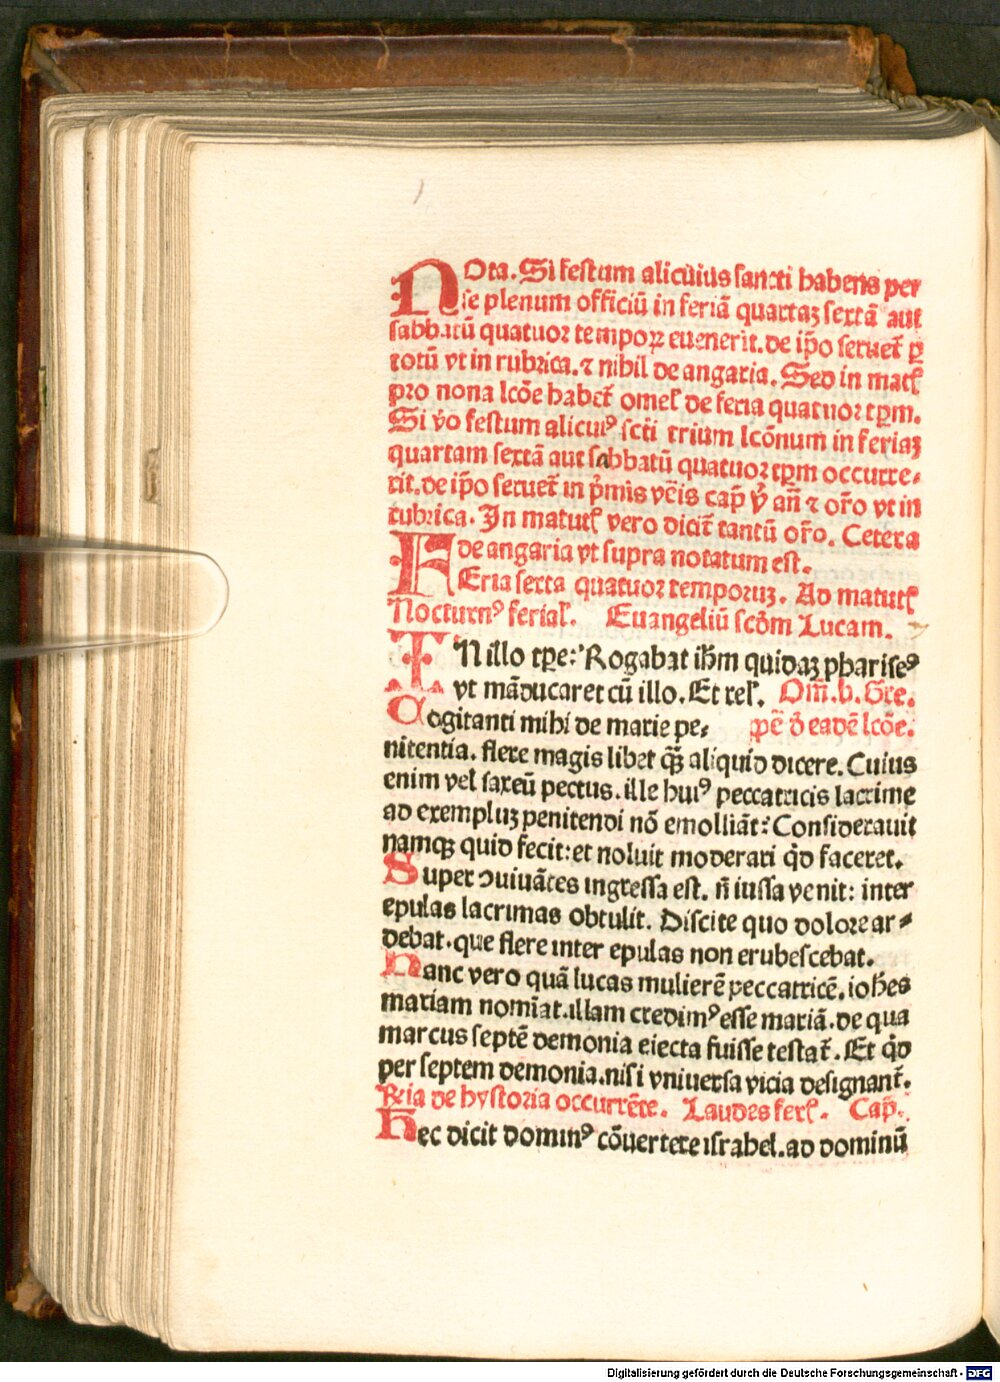 NOta. Si festum alicuius sancti habens per
se plenum officiū in feriā quartaꝫ sextā aut
sabbatū quatuor tempoꝝ euenerit. de ip̄o seruet᷑ ꝑ
totū vt in rubrica. ⁊ nihil de angaria. Sed in matꝉ
pro nona lcōe habet᷑ omeꝉ de feria quatuor tꝑm.
Si v̄o festum alicuiꝰ scti trium lcōnum in feriaꝫ
quartam sextā aut sabbatū quatuor tꝑm occurre⸗
rit. de ip̄o seruet᷑ in p̄mis vēis cap̄ v̄ an̄ ⁊ or̄o vt in
rubrica. In matutꝉ vero dicit᷑ tantū or̄o. Cetera
de angaria vt supra notatum est.
FEria sexta quatuor temporuꝫ. Ad matutꝉ
Nocturnꝰ feriaꝉ. Euangeliū scd̄m Lucam.
IN illo tꝑe: Rogabat ih̄m quidaꝫ phariseꝰ
vt māducaret cū illo. Et reꝉ. Om̄. b. Gre.
Cogitanti mihi de marie pe⸗ ꝑpē d̄ eadē lcōe.
nitentia. flere magis libet q̄ꝫ aliquid dicere. Cuius
enim vel saxeū pectus. ille huiꝰ peccatricis lacrime
ad exempluꝫ penitendi nō emolliāt: Considerauit
namqꝫ quid fecit: et noluit moderari qd̄ faceret.
Super ꝯuiuātes ingressa est. n̄ iussa venit: inter
epulas lacrimas obtulit. Discite quo dolore ar⸗
debat. que flere inter epulas non erubescebat.
Hanc vero quā lucas mulierē peccatricē. ioh̄es
mariam nomīat. illam credimꝰ esse mariā. de qua
marcus septē demonia eiecta fuisse testat᷑. Et qd̄
per septem demonia. nisi vniuersa vicia designant᷑.
Rꝛia de hystoria occurrēte. Laudes ferꝉ. Cap̄.
Hec dicit dominꝰ cōuertete israhel. ad dominū
Digitalisierung gefördert durch die Deutsche Forschungsgemeinschaft - DFG